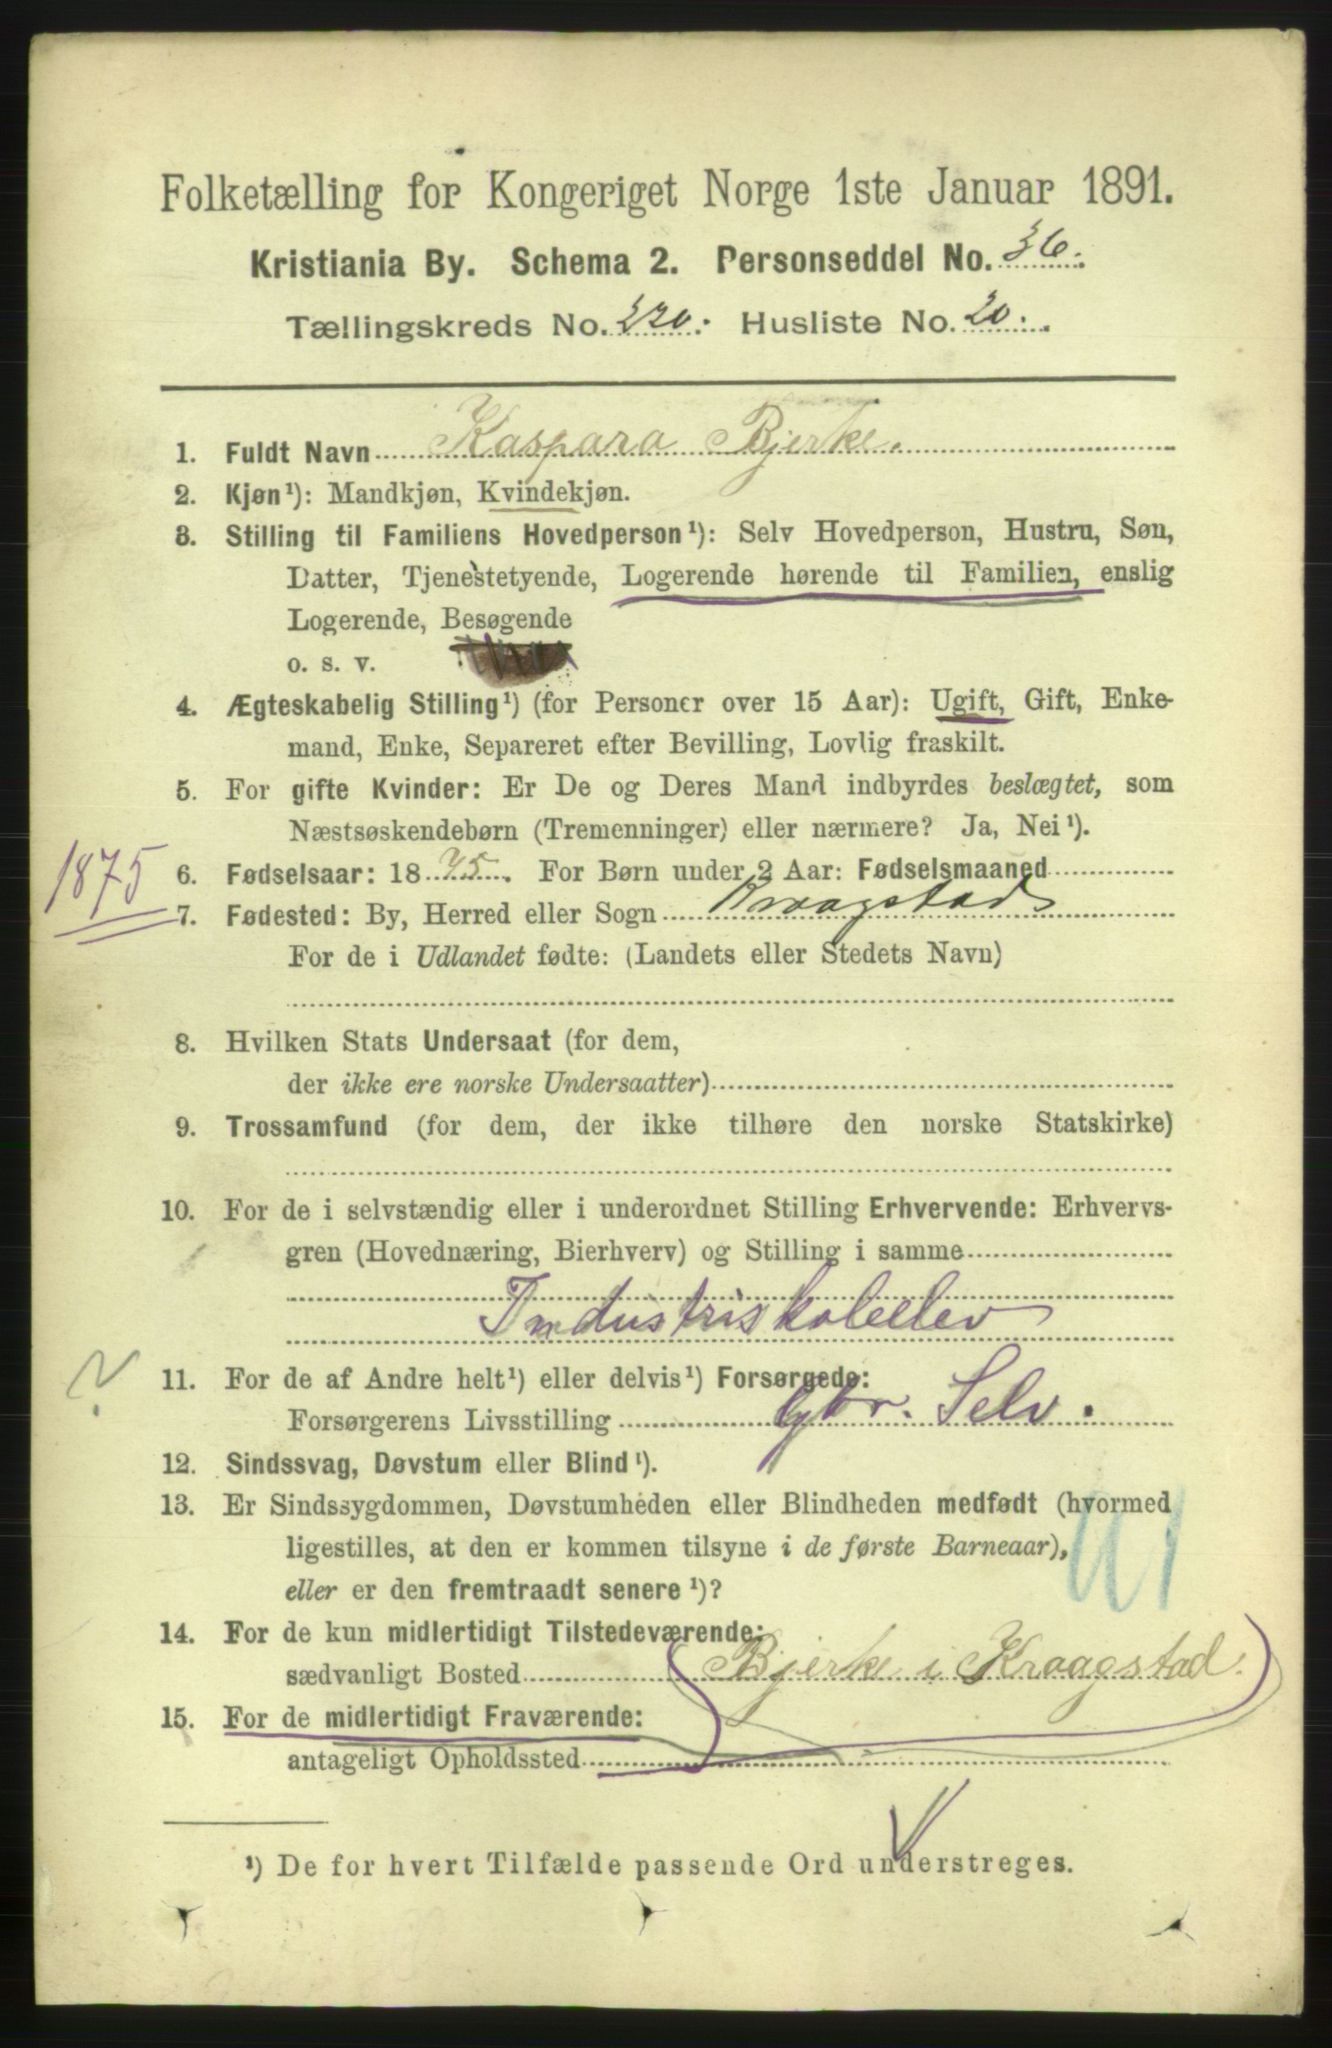 Folketælling for Kongeriget Norge 1ste Januar 1891.
Kristiania By. Schema 2. Personseddel No. 36.
Tællingskreds No. 220. Husliste No. 20.
1. Fuldt Navn Kaspara Bjerke.
2. Kjøn¹): Mandkjøn, Kvindekjøn.
3. Stilling til Familiens Hovedperson¹): Selv Hovedperson, Hustru, Søn,
Datter, Tjenestetyende, Logerende hørende til Familien, enslig
Logerende, Besøgende
o. s. v.
4. Ægteskabelig Stilling¹) (for Personer over 15 Aar): Ugift, Gift, Enke-
mand, Enke, Separeret efter Bevilling, Lovlig fraskilt.
5. For gifte Kvinder: Er De og Deres Mand indbyrdes beslægtet, som
Næstsøskendebørn (Tremenninger) eller nærmere? Ja, Nei¹).
1875
6. Fødselsaar: 1875. For Børn under 2 Aar: Fødselsmaaned
7. Fødested: By, Herred eller Sogn Kraagstad
For de i Udlandet fødte: (Landets eller Stedets Navn)
8. Hvilken Stats Undersaat (for dem,
der ikke ere norske Undersaatter)
9. Trossamfund (for dem, der ikke tilhøre den norske Statskirke)
10. For de i selvstændig eller i underordnet Stilling Erhvervende: Erhvervs-
gren (Hovednæring, Bierhverv) og Stilling i samme
Industriskoleelev
?
11. For de af Andre helt¹) eller delvis¹) Forsørgede:
Forsørgerens Livsstilling Gbr. Selv.
12. Sindssvag, Døvstum eller Blind¹).
13. Er Sindssygdommen, Døvstumheden eller Blindheden medfødt (hvormed
ligestilles, at den er kommen tilsyne i de første Barneaar),
eller er den fremtraadt senere¹)?
14. For de kun midlertidigt Tilstedeværende:
sædvanligt Bosted Bjerke i Kraagstad.
15. For de midlertidigt Fraværende:
antageligt Opholdssted
¹) De for hvert Tilfælde passende Ord understreges.